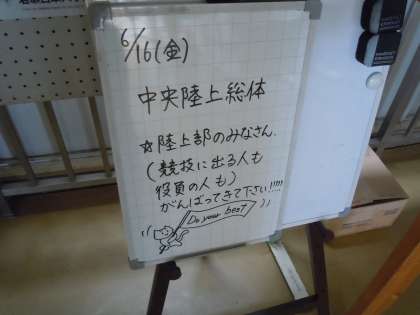 6/16(金)
中央陸上総体
☆陸上部のみなさん.
(競技に出る人も
役員の人も)
がんばってきて下さい!!!!!
Do your best